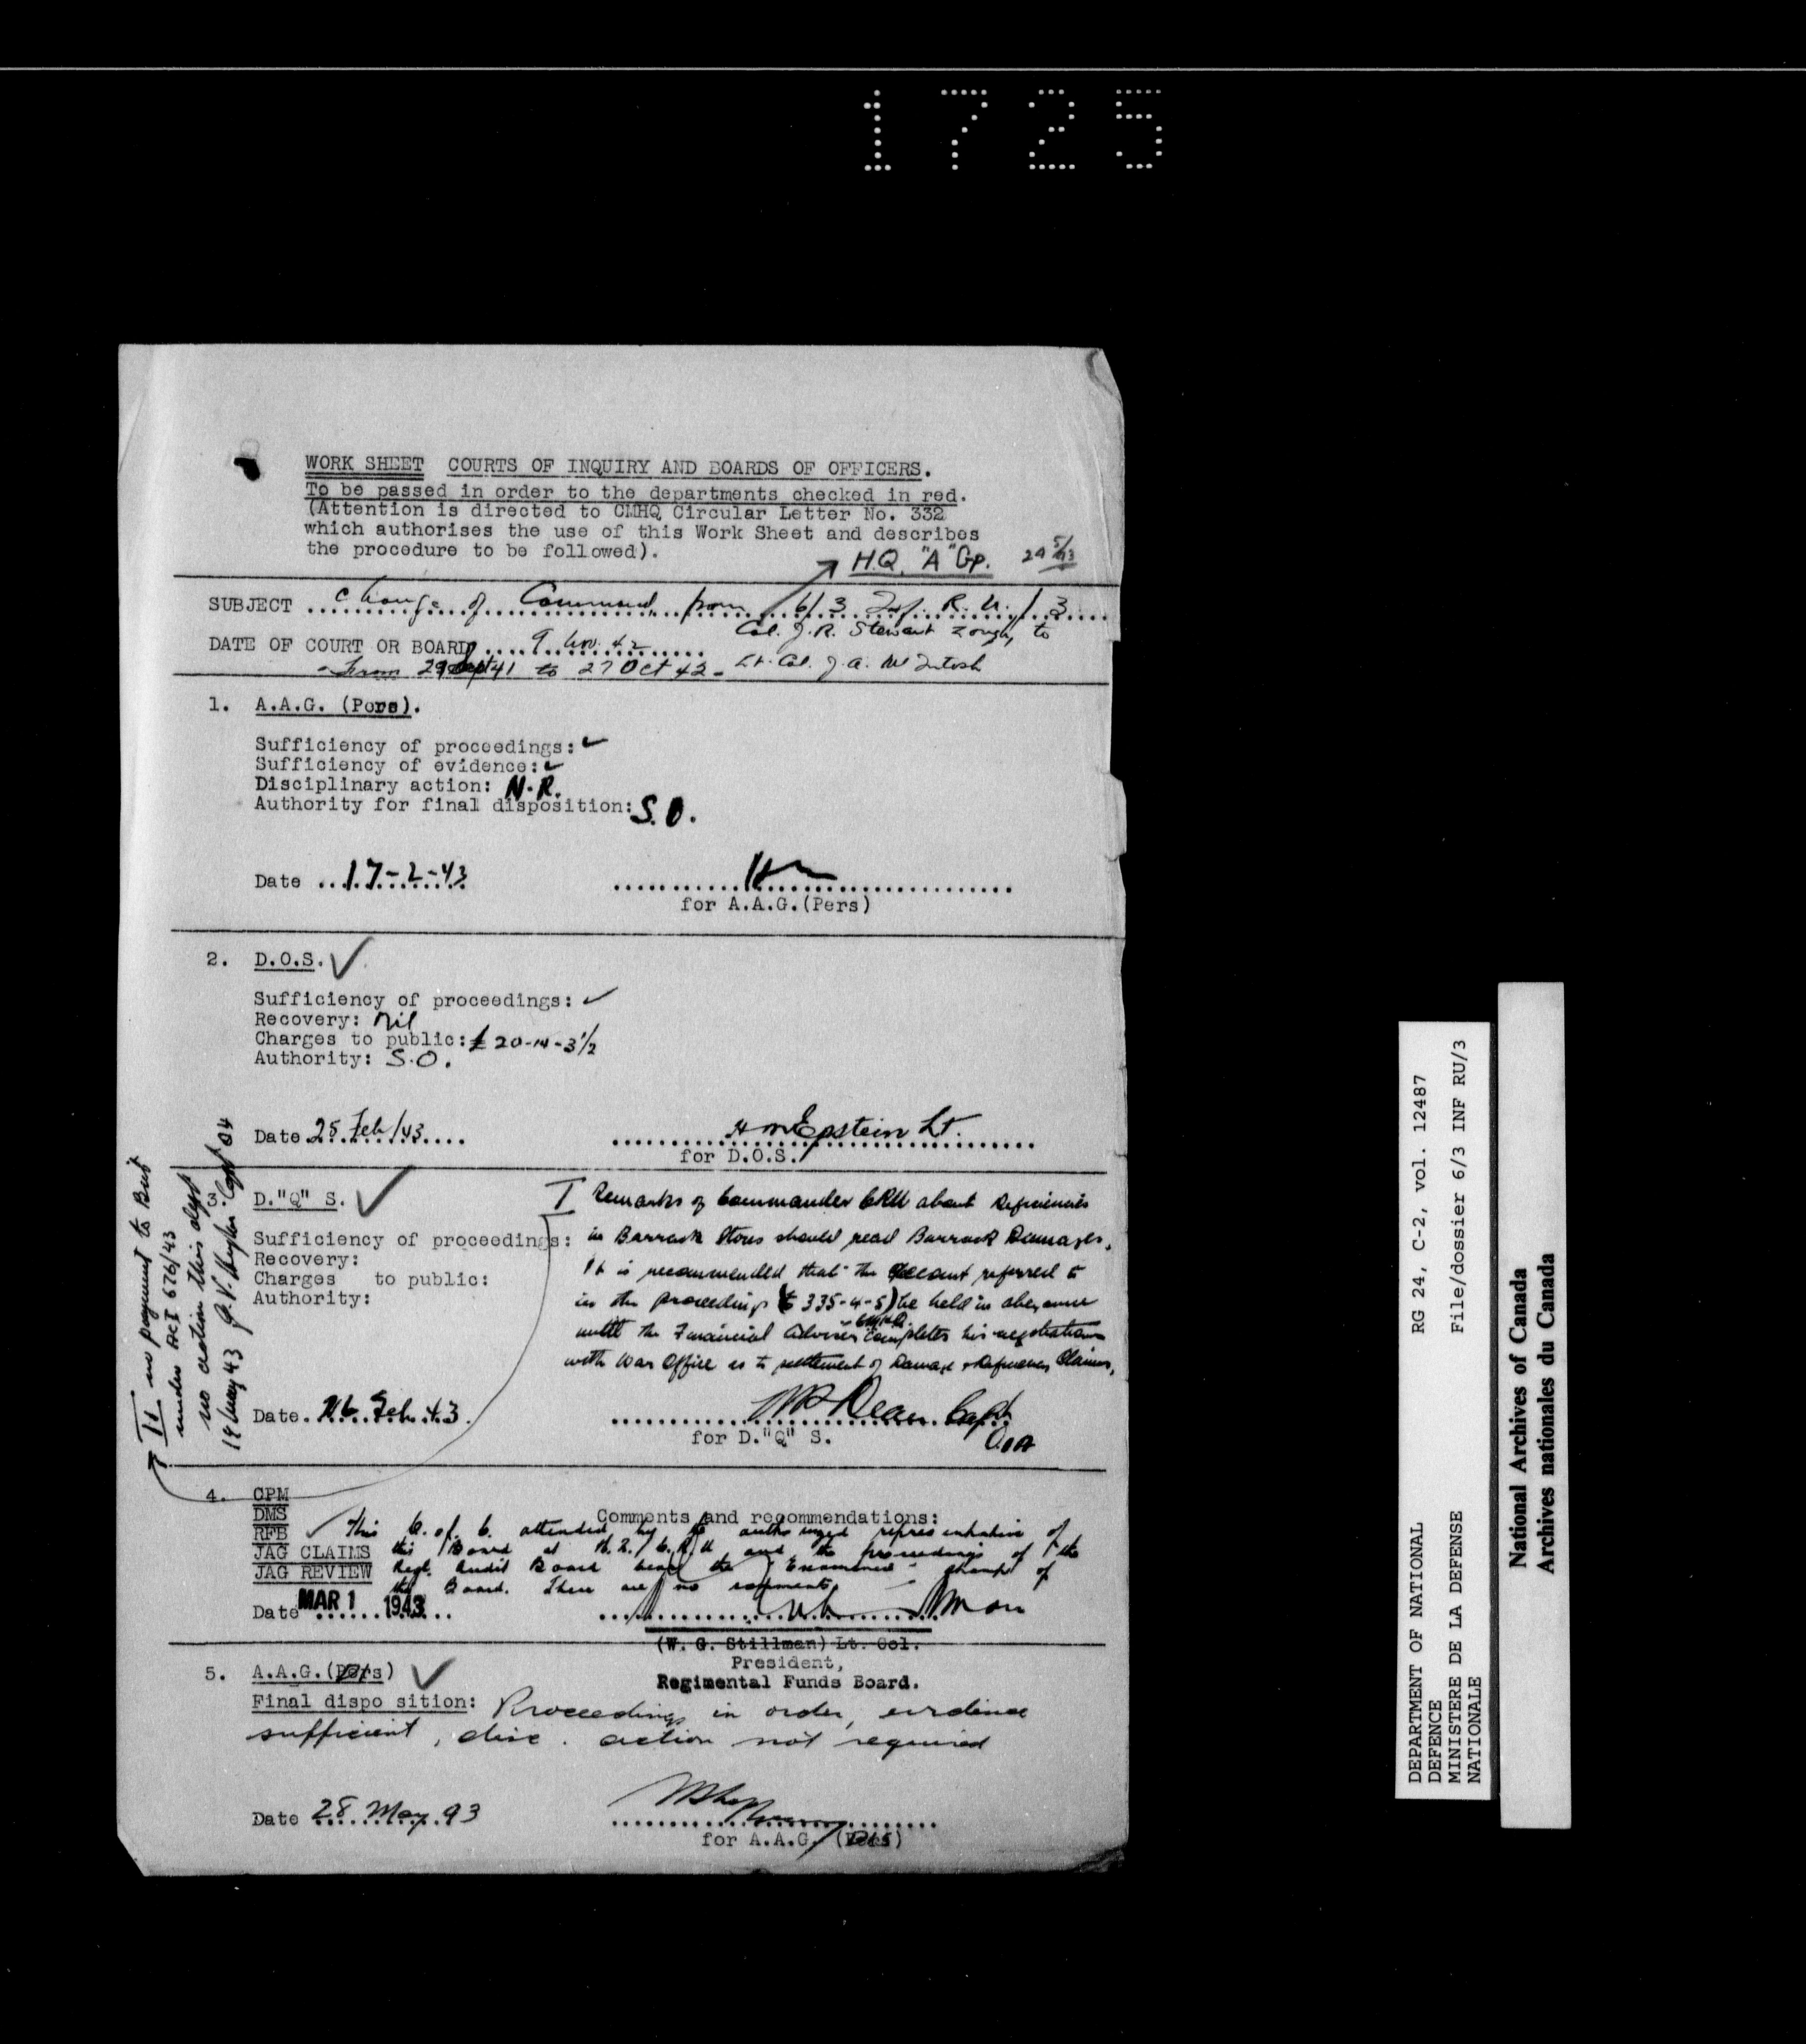 1725
WORK SHEET COURTS OF INQUIRY AND BOARDS OF OFFICERS.
To be passed in order to the departments checked in red.
(Attention is directed to CMHQ Circular Letter No. 332
which authorises the use of this Work Sheet and describes
the procedure to be followed).
H.Q. "A" Gp.
SUBJECT Change of Command from 6/3 Inf. R.U. / 3
Col. J.R. Stewart to
DATE OF COURT OR BOARD 9 42
From 29 41 to 27 Oct 42 - Lt. Col. J.A. McIntosh
1. A.A.G. (Pers).
Sufficiency of proceedings: ✓
Sufficiency of evidence: ✓
Disciplinary action: N.R.
Authority for final disposition: S.O.
Date 17-2-43
for A.A.G.(Pers)
2. D.O.S. ✓
Sufficiency of proceedings: ✓
Recovery: Nil
Charges to public: £20-14-3½
Authority: S.O.
Date 25 Feb/43 Epstein Lt.
for D.O.S.
3. D."Q" S. ✓
Sufficiency of proceedings:
Recovery:
Charges to public:
Authority:
I Remarks of Commander CRU about Deficiencies
in Barrack Stores should read Barrack Damages.
It is recommended that the account referred to
in the proceedings (£335-4-5) be held in abeyance
until the Financial Adviser CMHQ completes his negotiations
with War Office as to settlement of Damage & Deficiency Claims.
Date 26 Feb 43 Dean Capt
for D."Q" S.
II no payment to Brit
under ACI 676/43
no action this dept
19 May 43 Capt
4. CPM
DMS
RFB ✓
JAG CLAIMS
JAG REVIEW
Comments and recommendations:
This C. of C. attended by the authorized representative of
this Board at H.Q. C.R.U and the proceedings of the
Regt. Audit Board bear the "Examined" stamp of
the Board. There are no comments
Date MAR 1 1943
(W. G. Stillman) Lt. Col.
President,
Regimental Funds Board.
5. A.A.G.(Dis) ✓
Final dispo sition: Proceedings in order, evidence
sufficient, disc. action not required
Date 28 May 43
for A.A.G. (Dis)
DEPARTMENT OF NATIONAL
DEFENCE
MINISTERE DE LA DEFENSE
NATIONALE
RG 24, C-2, vol. 12487
File/dossier 6/3 INF RU/3
National Archives of Canada
Archives nationales du Canada